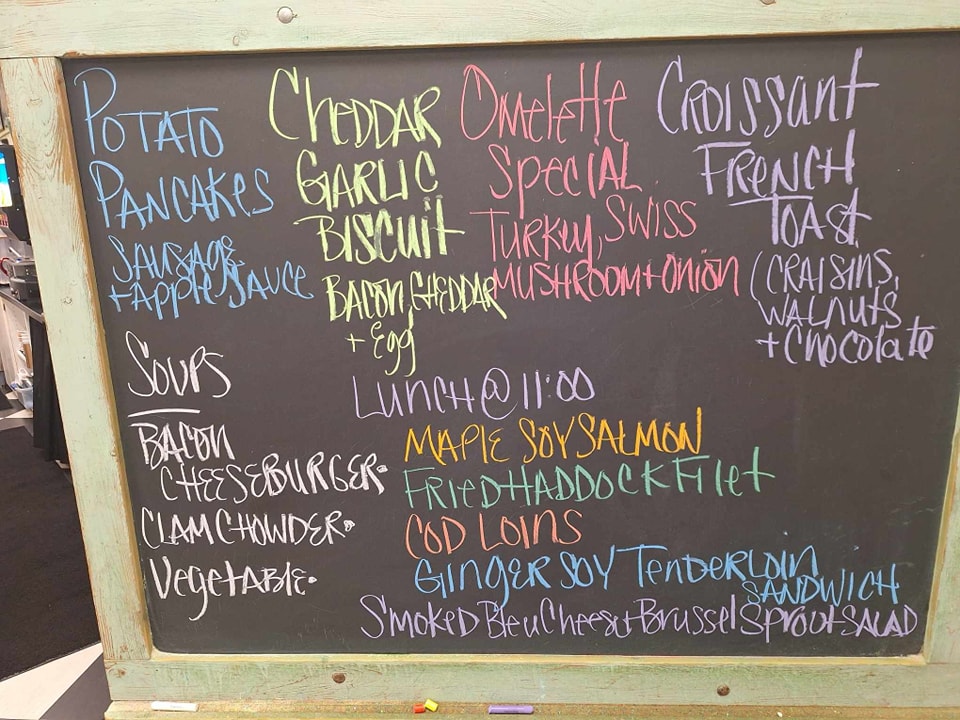 Potato
Pancakes
Sausage
+ Apple Sauce
Cheddar
Garlic
Biscuit
Bacon, Cheddar
+ Egg
Omelette
Special
Turkey, Swiss
Mushroom + Onion
Croissant
French
Toast
(Craisins,
Walnuts
+ Chocolate
Soups
Bacon
Cheeseburger
Clam Chowder
Vegetable
Lunch @ 11:00
Maple Soy Salmon
Fried Haddock Filet
Cod Loins
Ginger Soy Tenderloin
Sandwich
Smoked Bleu Cheese + Brussel Sprout Salad